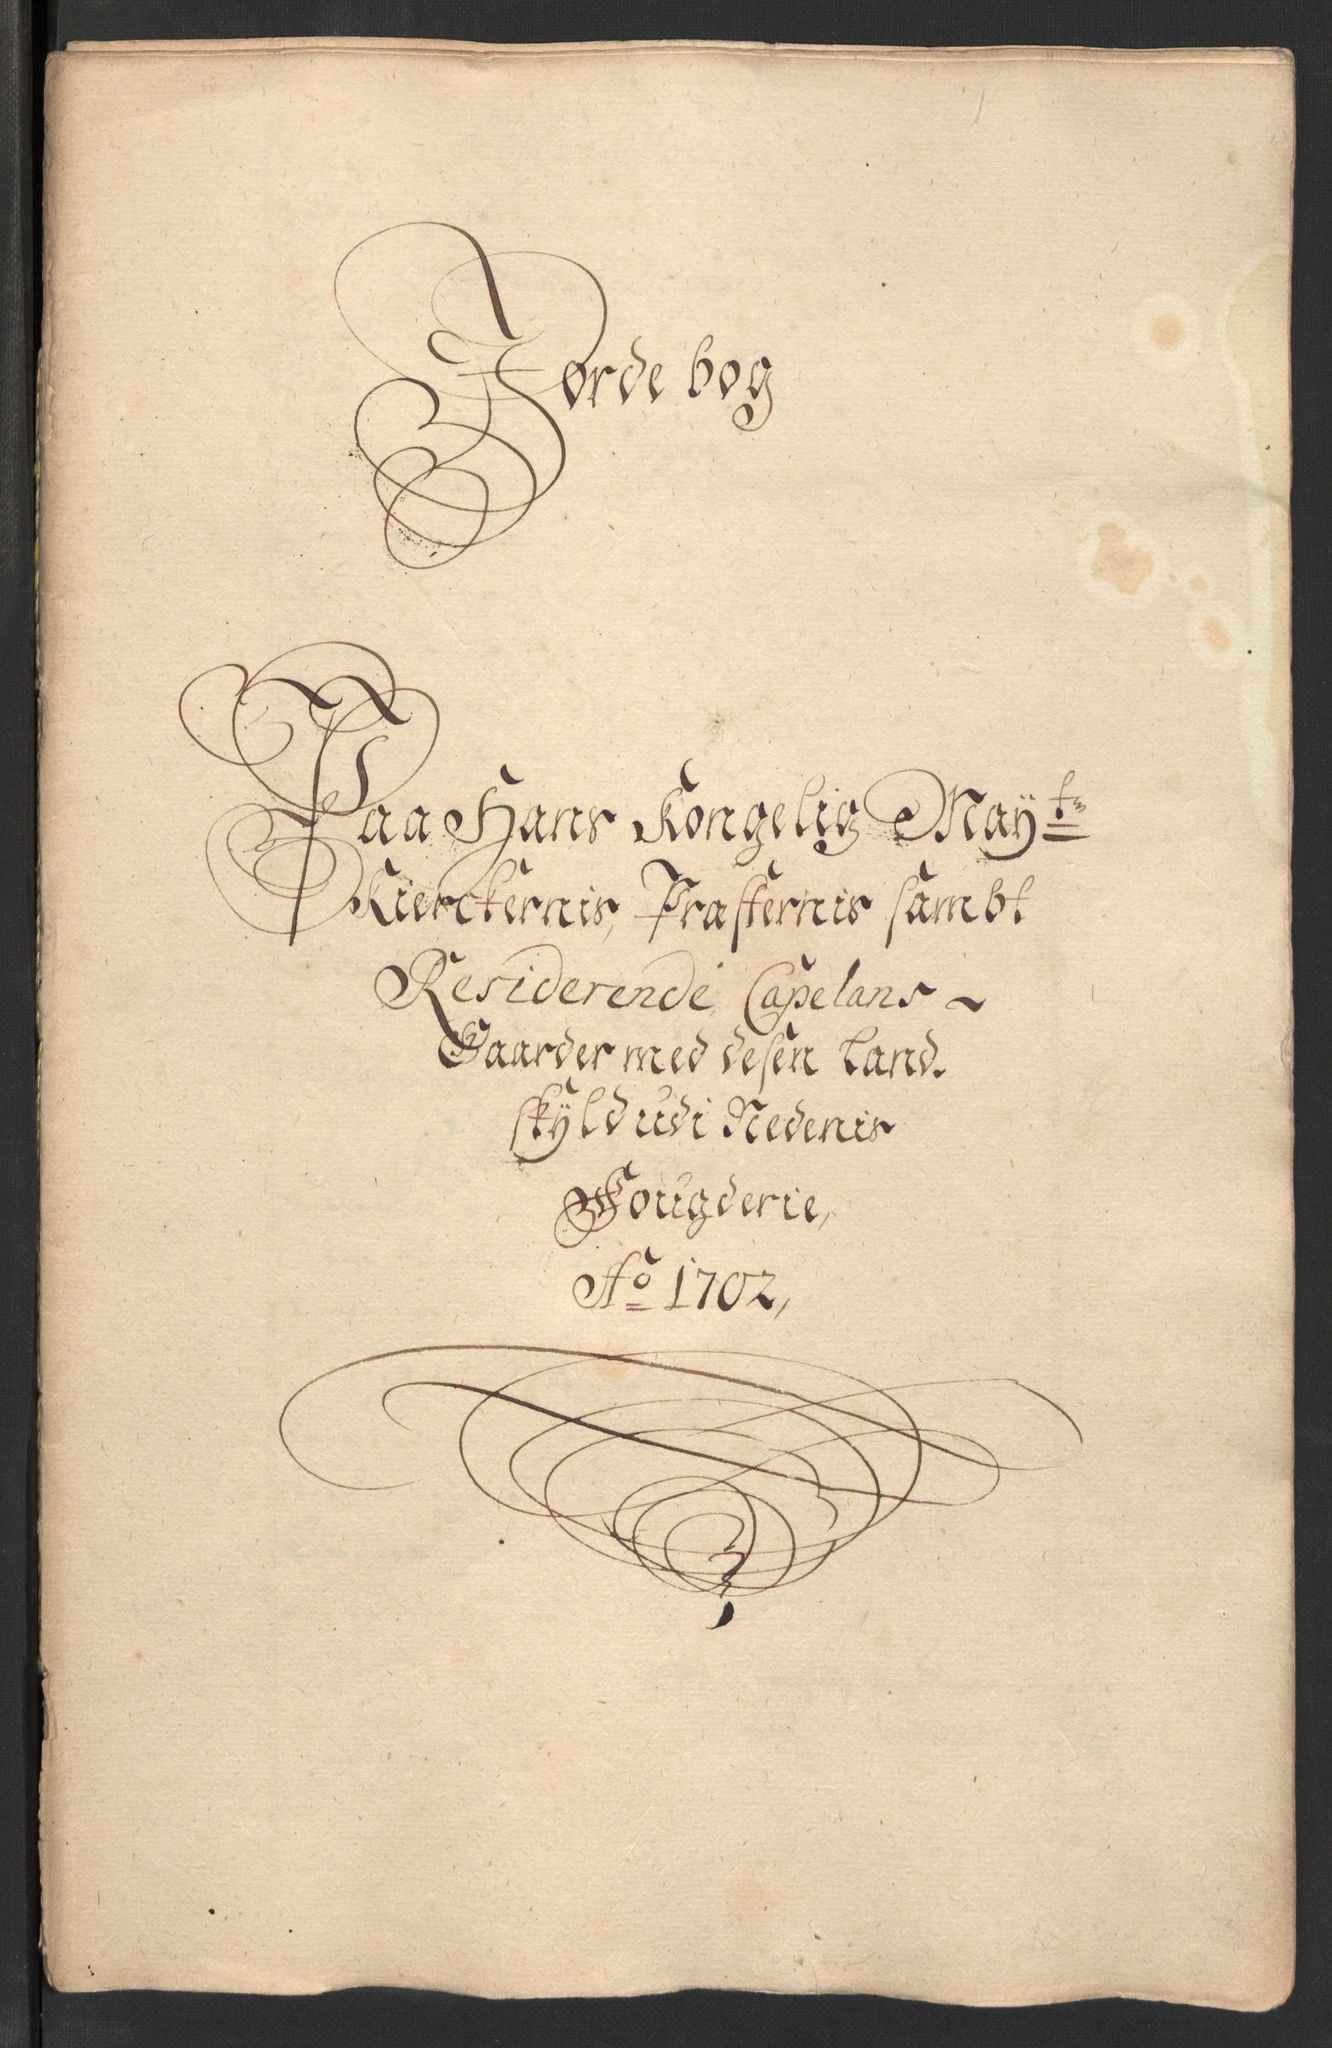 Jorde bog
Paa Hans Kongelig Maÿts
Kierckernis, Præsternis sambt
Residerende Capelans
Gaarder med desen Land-
skÿld udi Nedenis
Fougderie,
Ao 1702,